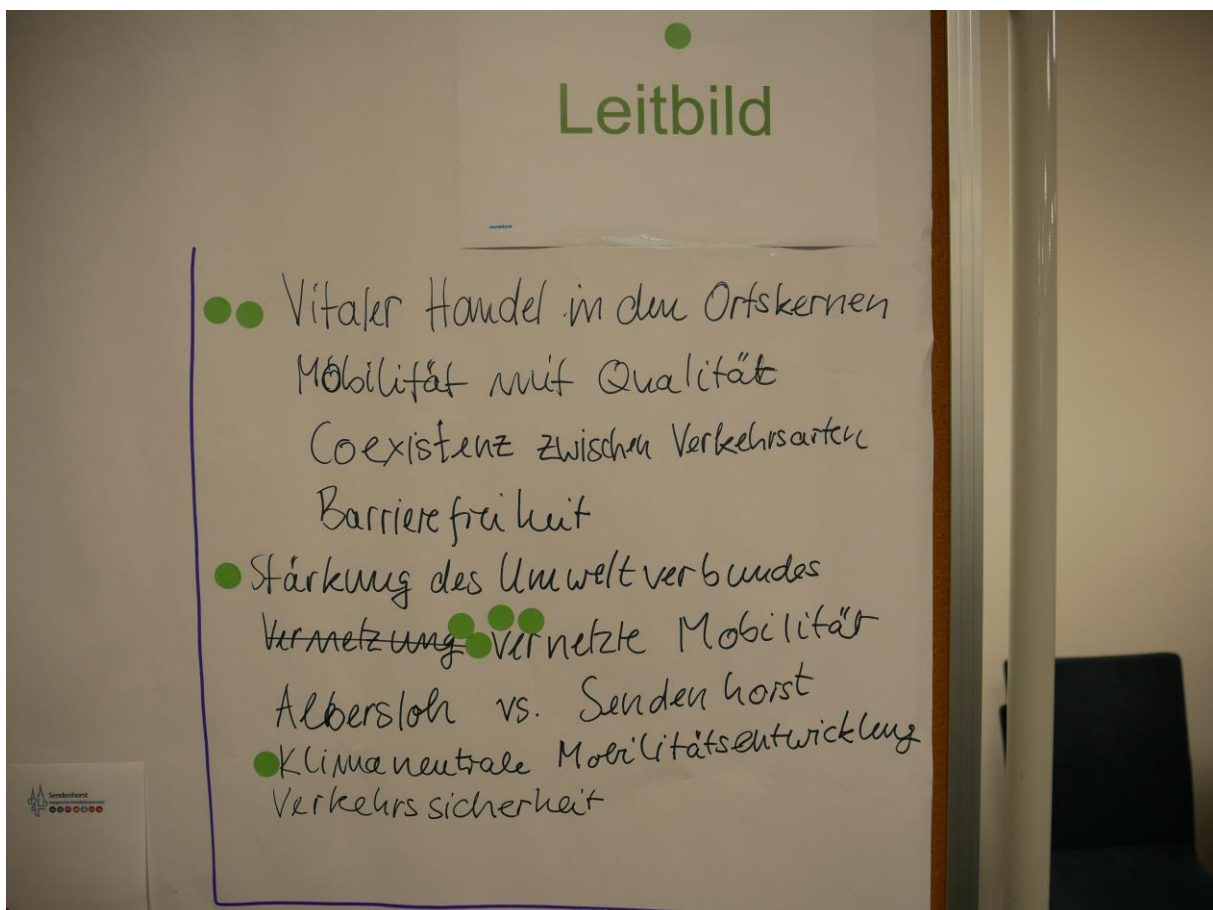 Leitbild
Vitaler Handel in den Ortskernen
Mobilität mit Qualität
Coexistenz zwischen Verkehrsarten
Barrierefreiheit
Stärkung des Umweltverbundes
Vernetzung vernetzte Mobilität
Albersloh vs. Sendenhorst
Klimaneutrale Mobilitätsentwicklung
Verkehrssicherheit
Sendenhorst